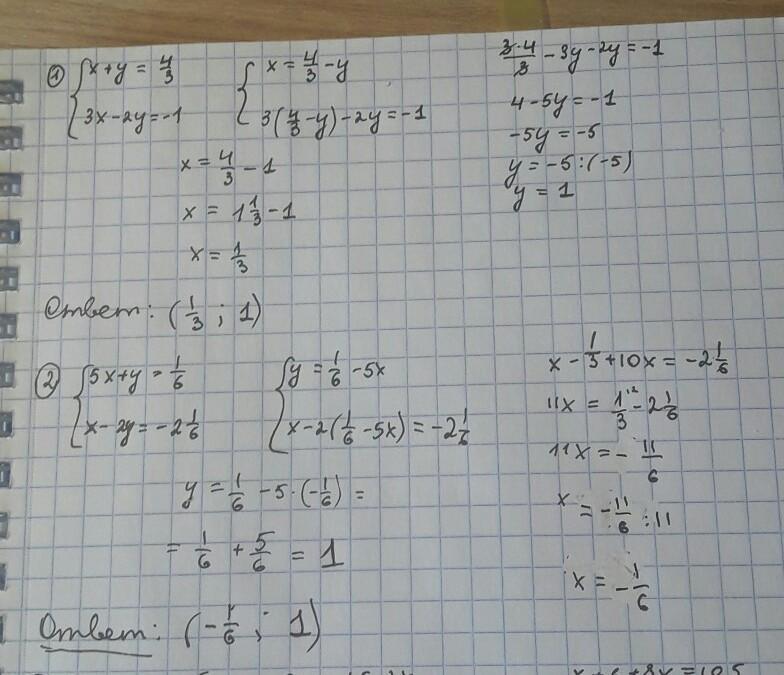 ① { x + y = 4/3
3x - 2y = -1
{ x = 4/3 - y
3(4/3 - y) - 2y = -1
3·4/3 - 3y - 2y = -1
4 - 5y = -1
-5y = -5
y = -5 : (-5)
y = 1
x = 4/3 - 1
x = 1 1/3 - 1
x = 1/3
Ответ: (1/3 ; 1)
② { 5x + y = 1/6
x - 2y = -2 1/6
{ y = 1/6 - 5x
x - 2(1/6 - 5x) = -2 1/6
x - 1/3 + 10x = -2 1/6
11x = 1/3 - 2 1/6
11x = - 11/6
x = - 11/6 : 11
x = - 1/6
y = 1/6 - 5 · (- 1/6) =
= 1/6 + 5/6 = 1
Ответ: (- 1/6 ; 1)